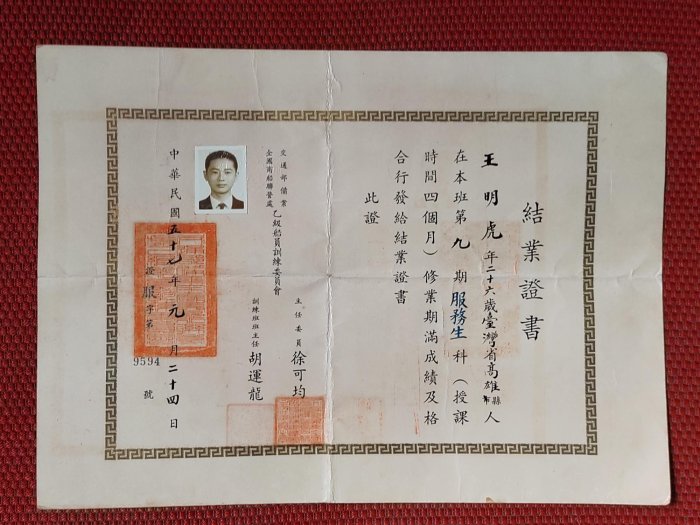 結業證書
王明虎年二十六歲臺灣省高雄縣市人
在本班第九期服務生科(授課
時間四個月)修業期滿成績及格
合行發給結業證書
此證
主任委員 徐可均
訓練班班主任 胡運龍
交通部儲業
全國商船聯營處
乙級船員訓練委員會
中華民國五十七年元月二十四日
證服字第9594號